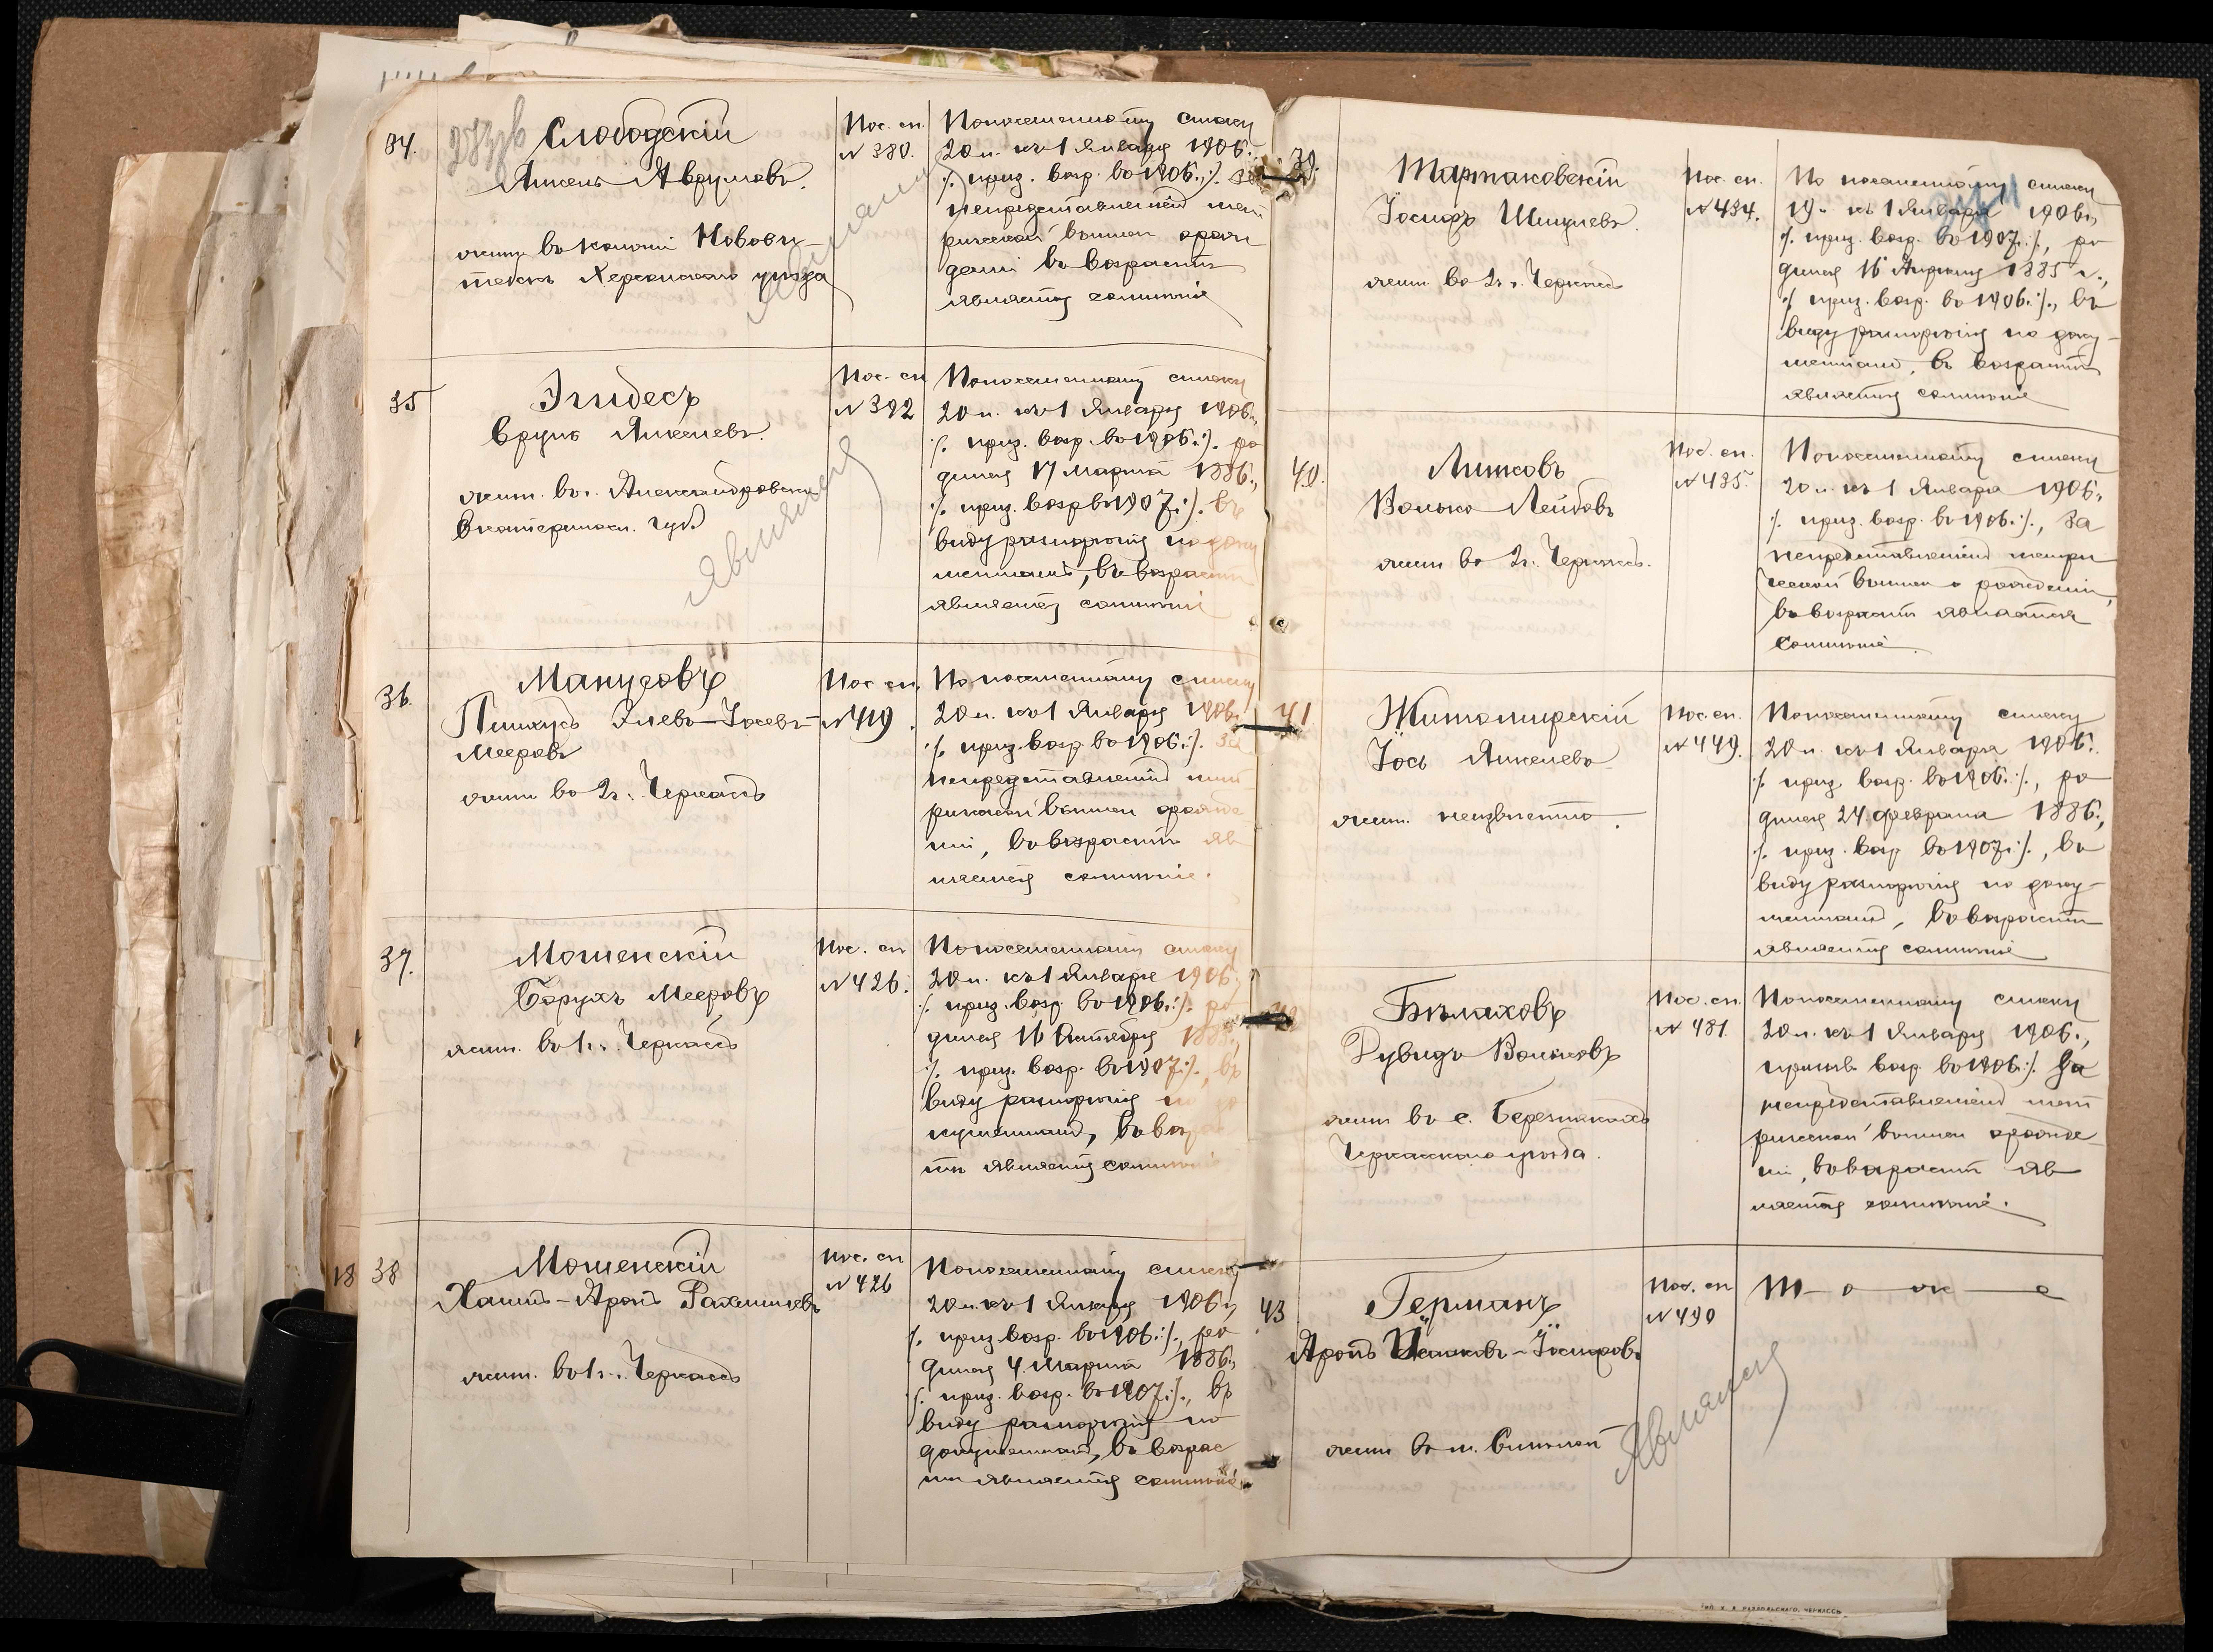 34.
Слободскій
Янкель Аврумовъ.
жит. въ колоніи Нововитебскъ Херсонскаго уѣзда
Пос. сп.
№ 380.
По посемейному списку
20 л. къ 1 Января 1906 г.
·/. приз. возр. въ 1906 г. ·/. за
непредставленіемъ мет
рической выписи о рож
деніи въ возрастѣ
является сомнѣніе
35
Эшдесъ
Сруль Янкелевъ.
жит. въ г. Александровскѣ
Екатериносл. губ.
Пос. сп
№ 392
По посемейному списку
20 л. къ 1 Января 1906 г.,
·/. приз. возр. въ 1906 г. ·/. ро
дился 17 Марта 1886 г.,
·/. приз. возр въ 1907 г. ·/. въ
виду разнорѣчія по доку
ментамъ, въ возрастѣ
является сомнѣніе
Явился
36.
Манусовъ
Пинхусъ Элевъ-Іосевъ-
Мееровъ
жит въ г. Черкассѣ
Пос. сп.
№ 419.
По посемейному списку
20 л. къ 1 Января 1906 г.
·/. приз. возр. въ 1906 г. ·/. за
непредставленіемъ мет
рической выписи о рожде
ніи, въ возрастѣ яв
ляется сомнѣніе.
37.
Мошенскій
Борухъ Мееровъ
жит. въ г. Черкассѣ
Пос. сп
№ 426.
По посемейному списку
20 л. къ 1 Января 1906 г.
·/. приз. возр. въ 1906 г. ·/. ро
дился 16
·/. приз. возр. въ 1907 г. ·/., въ
виду разнорѣчія по до
кументамъ, въ возрас
тѣ является сомнѣніе
18
38
Мошенскій
Хаимъ-Аронъ Рахмилевъ
жит. въ г. Черкассѣ
Пос. сп
№ 426
По посемейному списку
20 л. къ 1 Января 1906 г.,
·/. приз. возр. въ 1906 г. ·/., ро
дился 4 Марта 1886 г.,
·/. приз. возр. въ 1907 г. ·/., въ
виду разнорѣчія по
документамъ, въ возрас
тѣ является сомнѣніе
39.
Тартаковскій
Іосифъ Шмулевъ.
жит. въ г. Черкассѣ
Пос. сп.
№ 434.
По посемейному списку
19 л. къ 1 Января 1906 г.,
·/. приз. возр. въ 1907 г. ·/., ро
дился 16 Апрѣля 1885 г.,
·/. приз. возр. въ 1906 г. ·/., въ
виду разнорѣчія по доку-
ментамъ, въ возрастѣ
является сомнѣніе
40.
Литковъ
Волько Лейбовъ
жит въ г. Черкассѣ.
Пос. сп.
№ 435.
По посемейному списку
20 л. къ 1 Января 1906 г.,
·/. приз. возр. въ 1906 г. ·/., за
непредставленіемъ метри
ческой выписи о рожденіи,
въ возрастѣ является
сомнѣніе.
41
Житомирскій
Іось Янкелевъ
жит. неизвѣстно.
Пос. сп.
№ 449.
По посемейному списку
20 л. къ 1 Января 1906 г.
·/. приз. возр. въ 1906 г. ·/., ро
дился 24 февраля 1886 г.,
·/. приз. возр въ 1907 г. ·/., въ
виду разнорѣчія по доку-
ментамъ, въ возрастѣ
является сомнѣніе
Бѣлаховъ
Дувидъ Вольковъ
жит въ с. Березнякахъ
Черкасскаго уѣзда.
Пос. сп.
№ 481.
По посемейному списку
20 л. къ 1 Января 1906 г.,
призыв. возр. въ 1906 г. ·/. за
непредставленіемъ мет
рической выписи о рожде
ніи, въ возрастѣ яв
ляется сомнѣніе.
43
Германъ
Аронъ Ицковъ-Іосифовъ
жит въ м. Смѣлой
Пос. сп
№ 490
Т—о—ж—е
Явился